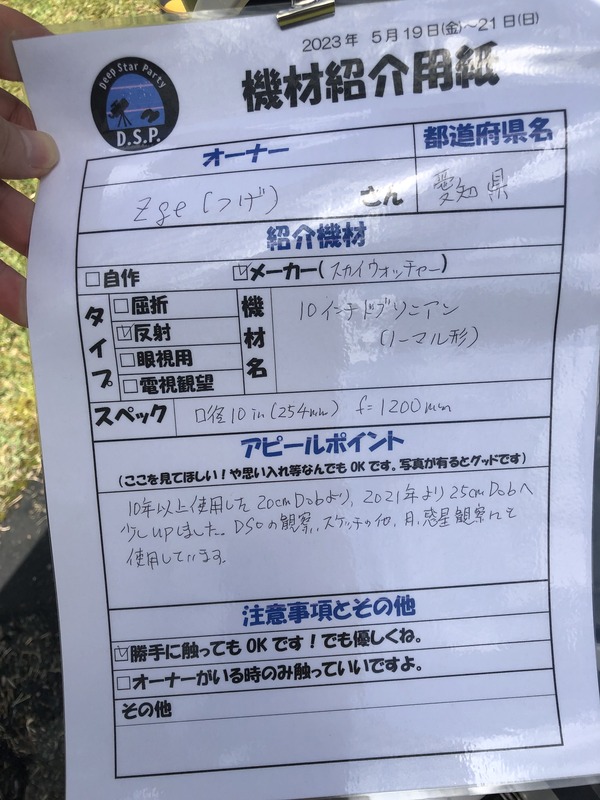 2023年 5月19日(金)～21日(日)
機材紹介用紙
Deep Star Party
D.S.P.
オーナー
都道府県名
Zge(つげ) さん
愛知県
紹介機材
□自作
☑メーカー(スカイウォッチャー)
タイプ
□屈折
☑反射
□眼視用
□電視観望
機材名
10インチドブソニアン
(ノーマル形)
スペック
口径10in(254mm) f=1200mm
アピールポイント
(ここを見てほしい！や思い入れ等なんでもOKです。写真が有るとグッドです)
10年以上使用した20cmDobより、2021年より25cmDobへ
少しupしました。DSOの観察、スケッチの他、月、惑星観察にも
使用しています。
注意事項とその他
☑勝手に触ってもOKです！でも優しくね。
□オーナーがいる時のみ触っていいですよ。
その他